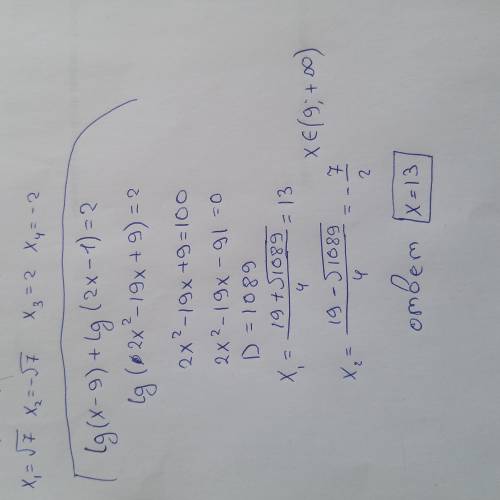 x₁=√7 x₂=-√7 x₃=2 x₄=-2
lg(x-9)+lg(2x-1)=2
lg(2x²-19x+9)=2
2x²-19x+9=100
2x²-19x-91=0
D=1089
x₁=(19+√1089)/4=13 x∈(9;+∞)
x₂=(19-√1089)/4=-7/2
ответ x=13